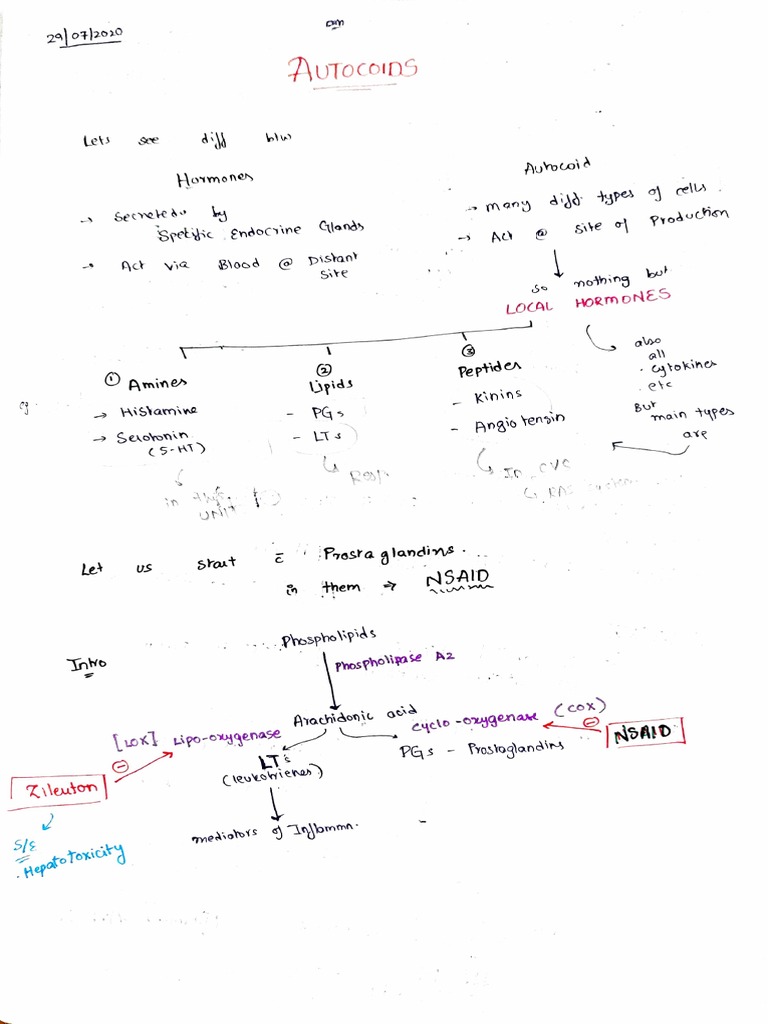 29/07/2020
AUTOCOIDS
Lets see diff b/w
Hormones
→ Secreted by
Specific Endocrine Glands
→ Act via Blood @ Distant
site
Autocoid
→ Many diff types of cells.
→ Act @ site of Production
so nothing but
LOCAL HORMONES
also
all
. cytokines
. etc
But
main types
are
① Amines
→ Histamine
→ Serotonin
(5-HT)
② Lipids
- PGs
- LTs
Resp
③ Peptides
- Kinins
- Angiotensin
In CVC
eg.
in
UNIT
Let us start c̄ Prostaglandins.
in them → NSAID
Intro
Phospholipids
Phospholipase A2
Arachidonic acid
[LOX] Lipo-oxygenase
cyclo-oxygenase (COX)
⊖
NSAID
LT's
(leukotrienes)
PGs - Prostaglandins
⊖
Zileuton
mediators of Inflammn.
S/E
. Hepatotoxicity